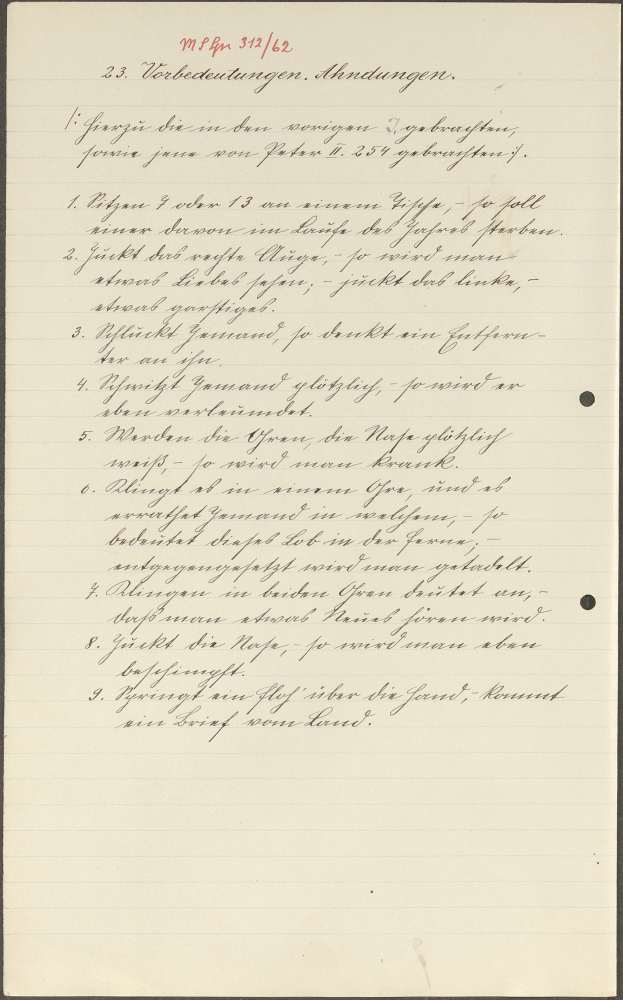 MS Gr 312/62
23. Vorbedeutungen. Ahndungen.
/: Hierzu die in den vorigen J. gebrachten,
sowie jene von Peter II. 254 gebrachten :/.
1. Sitzen 7 oder 13 an einem Tische, – so soll
einer davon im Laufe des Jahres sterben.
2. Juckt das rechte Auge, – so wird man
etwas Liebes sehen; – juckt das linke, –
etwas garstiges.
3. Schluckt Jemand, so denkt ein Entfern-
ter an ihn.
4. Schwitzt Jemand plötzlich, – so wird er
eben verleumdet.
5. Werden die Ohren, die Nase plötzlich
weiß, – so wird man krank.
6. Klingt es in einem Ohre, und es
errathet Jemand in welchem, – so
bedeutet dieses Lob in der Ferne; –
entgegengesetzt wird man getadelt.
7. Klingen in beiden Ohren deutet an, –
daß man etwas Neues hören wird.
8. Juckt die Nase, – so wird man eben
beschimpft.
9. Springt ein Floh über die Hand, – kommt
ein Brief vom Land.